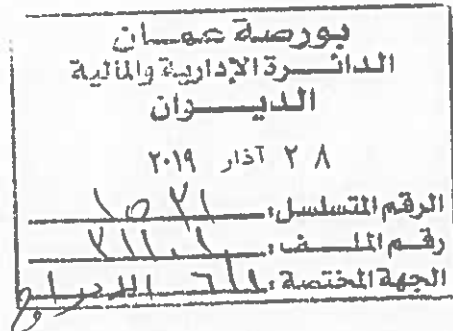 بورصة عمان
الدائرة الإدارية والمالية
الديوان
٢٨ آذار ٢٠١٩
الرقم المتسلسل: ١٥٢١
رقم الملف:
الجهة المختصة: